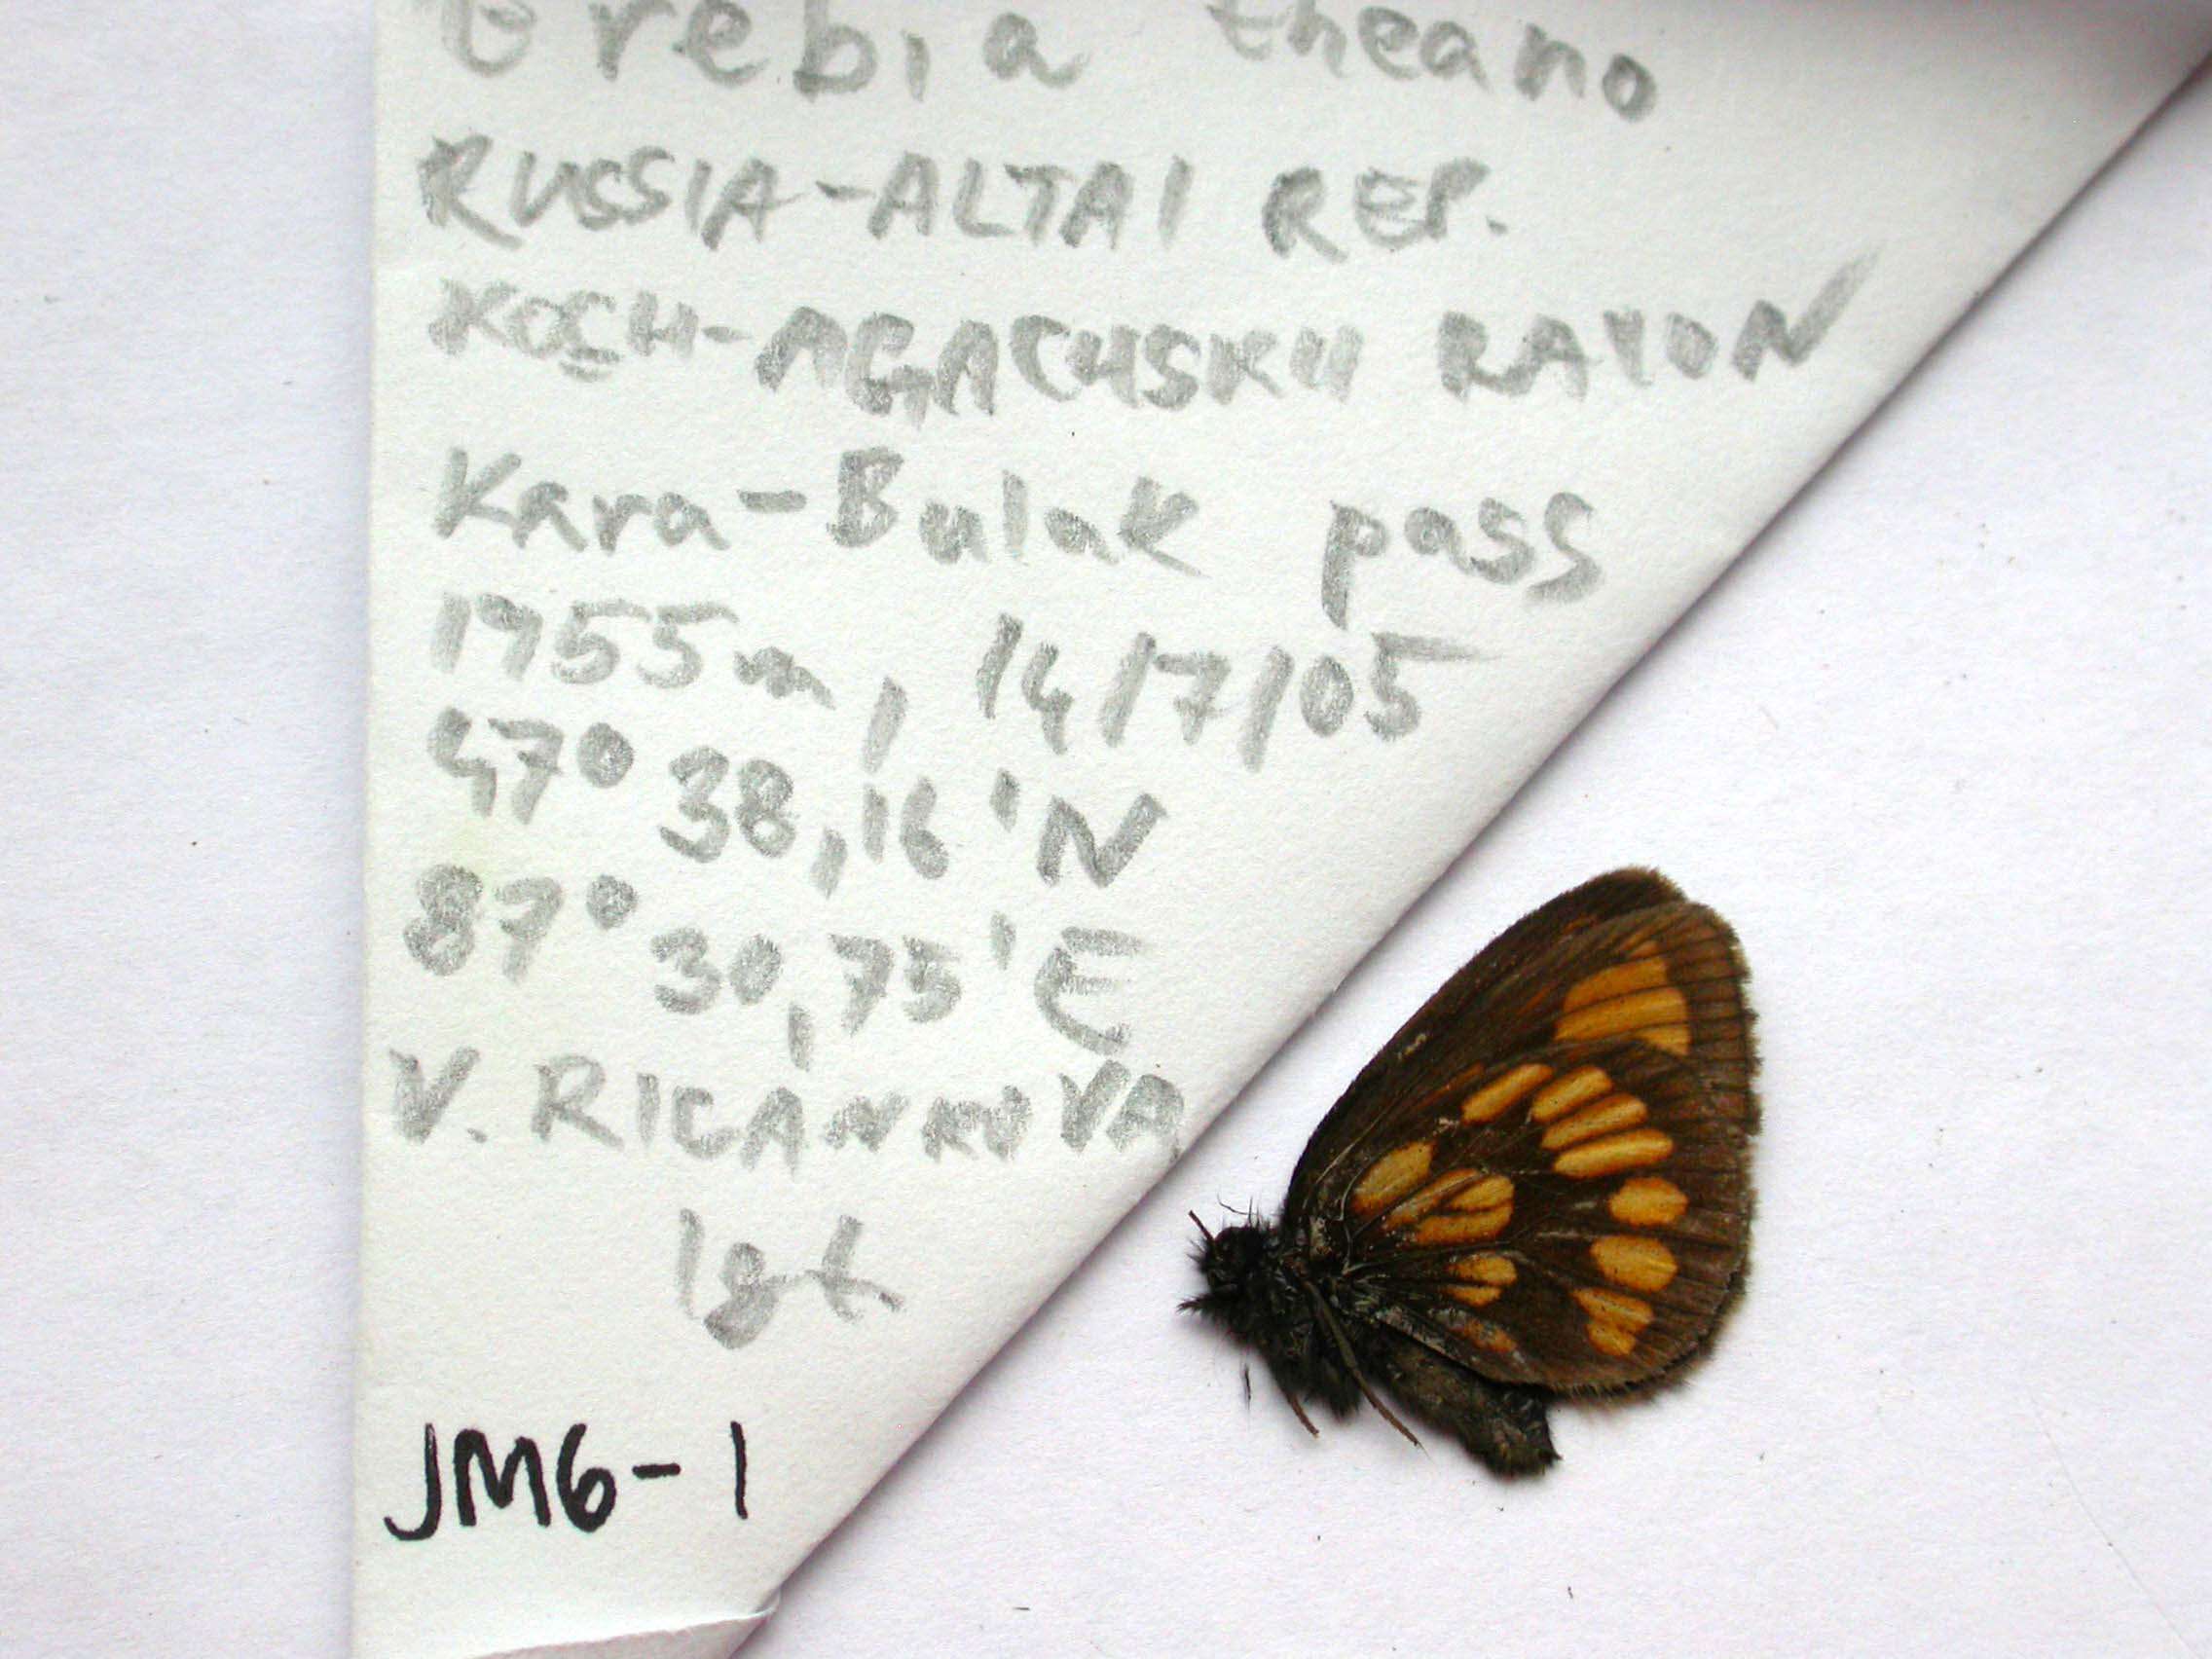 Erebia theano
RUSSIA-ALTAI REP.
KOSH-AGACHSKII RAYON
Kara-Bulak pass
1755m, 14/7/05
47° 38,16'N
87° 30,75'E
V. RICANKOVA
lgt
JM6-1